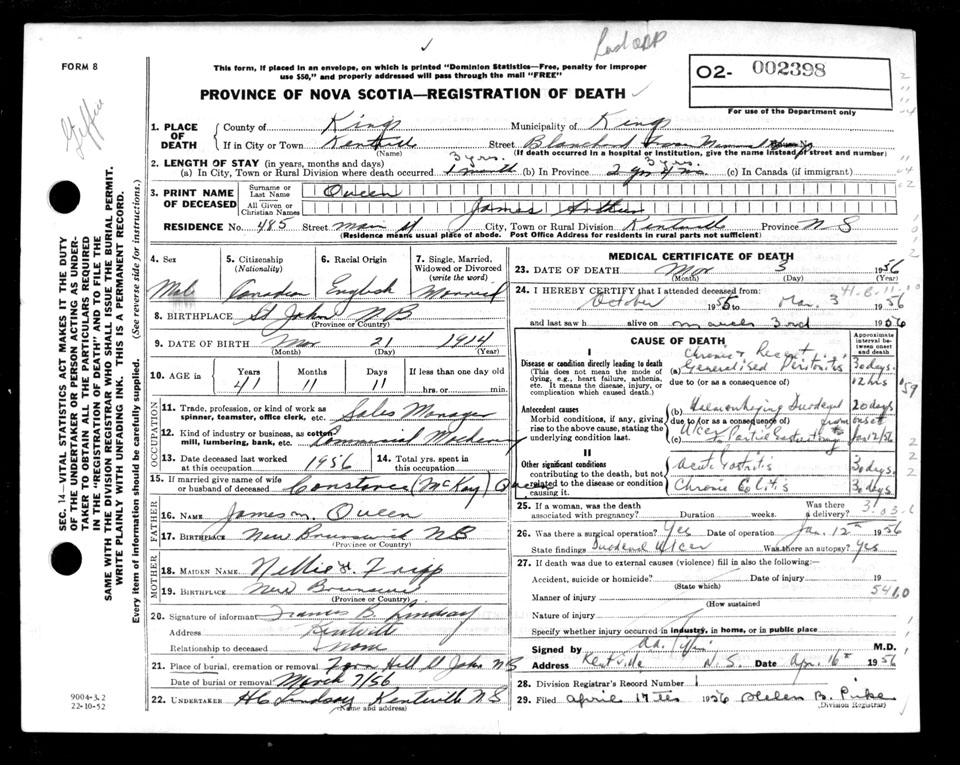 FORM 8
This form, if placed in an envelope, on which is printed "Dominion Statistics—Free, penalty for improper
use $50," and properly addressed will pass through the mail "FREE"
PROVINCE OF NOVA SCOTIA—REGISTRATION OF DEATH
02- 002398
For use of the Department only
1. PLACE OF DEATH
County of Kings Municipality of Kings
If in City or Town Kentville Street Blanchard
(Name) (If death occurred in a hospital or institution, give the name instead of street and number)
2. LENGTH OF STAY (in years, months and days)
3 yrs. 3 yrs.
(a) In City, Town or Rural Division where death occurred 1 month (b) In Province (c) In Canada (if immigrant)
3. PRINT NAME OF DECEASED
Surname or Last Name Queen
All Given or Christian Names James Arthur
RESIDENCE No. 485 Street Main St City, Town or Rural Division Kentville Province N S
(Residence means usual place of abode. Post Office Address for residents in rural parts not sufficient)
SEC. 14—VITAL STATISTICS ACT MAKES IT THE DUTY
OF THE UNDERTAKER OR PERSON ACTING AS UNDER-
TAKER TO OBTAIN ALL THE PARTICULARS REQUIRED
IN THE "REGISTRATION OF DEATH" AND TO FILE THE
SAME WITH THE DIVISION REGISTRAR WHO SHALL ISSUE THE BURIAL PERMIT.
WRITE PLAINLY WITH UNFADING INK. THIS IS A PERMANENT RECORD.
Every item of information should be carefully supplied. (See reverse side for instructions.)
4. Sex 5. Citizenship (Nationality) 6. Racial Origin 7. Single, Married, Widowed or Divorced (write the word)
Male Canadian English Married
8. BIRTHPLACE St John N B
(Province or Country)
9. DATE OF BIRTH Mar 21 1914
(Month) (Day) (Year)
10. AGE in Years Months Days If less than one day old
41 11 11 hrs. or min.
OCCUPATION
11. Trade, profession, or kind of work as
spinner, teamster, office clerk, etc. Sales Manager
12. Kind of industry or business, as cotton
mill, lumbering, bank, etc. Commercial
13. Date deceased last worked
at this occupation 1956
14. Total yrs. spent in
this occupation
15. If married give name of wife
or husband of deceased Constance (McKay) Queen
FATHER
16. NAME James Queen
17. BIRTHPLACE New Brunswick N B
(Province or Country)
MOTHER
18. MAIDEN NAME Nellie H. Fripp
19. BIRTHPLACE New Brunswick
(Province or Country)
20. Signature of informant Frances B. Lindsay
Address Kentville
Relationship to deceased none
21. Place of burial, cremation or removal Fern Hill St John NB
Date of burial or removal March 7/56
22. UNDERTAKER H C Lindsay Kentville N S
(Name and address)
9004-3.2
22-10-52
MEDICAL CERTIFICATE OF DEATH
23. DATE OF DEATH Mar 3 1956
(Month) (Day) (Year)
24. I HEREBY CERTIFY that I attended deceased from:
October 1955 to Mar. 3 1956
and last saw h alive on March 3rd 1956
CAUSE OF DEATH
Approximate interval between onset and death
I
Disease or condition directly leading to death
(This does not mean the mode of
dying, e.g., heart failure, asthenia,
etc. It means the disease, injury, or
complication which caused death.)
Chronic & Recent
(a) Generalised Peritonitis 30 days.
due to (or as a consequence of) 12 hrs
Antecedent causes
Morbid conditions, if any, giving
rise to the above cause, stating the
underlying condition last.
(b) Haemorrhaging Duodenal 20 days
due to (or as a consequence of) from onset
Ulcer
(c) Jan 12/56
II
Other significant conditions
contributing to the death, but not
related to the disease or condition
causing it.
Acute Gastritis 30 days.
Chronic Colitis 30 days
25. If a woman, was the death
associated with pregnancy? Duration weeks. Was there a delivery?
26. Was there a surgical operation? Yes Date of operation Jan. 12th 1956
State findings Duodenal Ulcer Was there an autopsy? Yes
27. If death was due to external causes (violence) fill in also the following:—
Accident, suicide or homicide? Date of injury 19
(State which)
541.0
Manner of injury
(How sustained)
Nature of injury
Specify whether injury occurred in industry, in home, or in public place
Signed by M.D.
Address Kentville N. S. Date Apr. 16th 1956
28. Division Registrar's Record Number 1
29. Filed April 17th 1956 Helen B. Pirke
(Division Registrar)